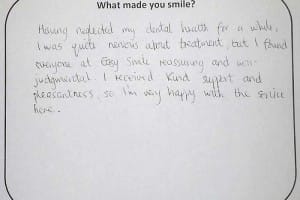 What made you smile?
Having neglected my dental health for a while,
I was quite nervous about treatment, but I found
everyone at Easy Smile reassuring and non-
judgmental. I received kind support and
pleasantness, so I'm very happy with the service
here..